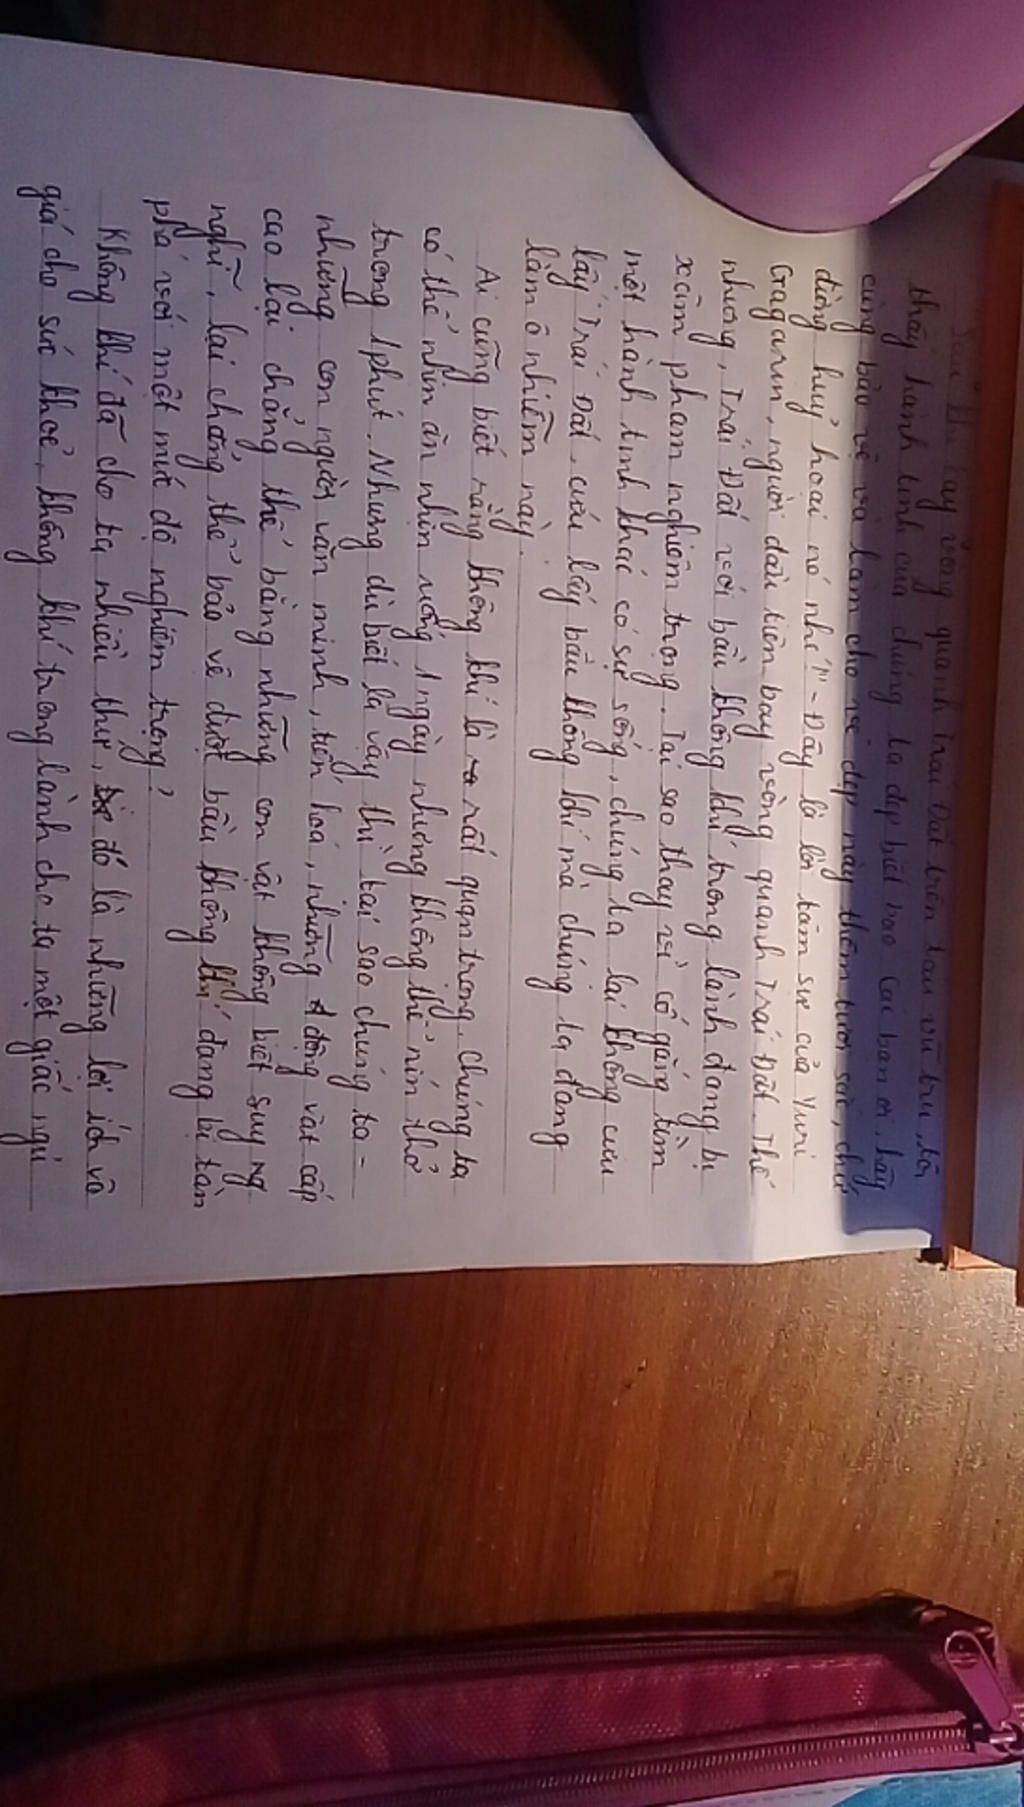 Sau khi bay vòng quanh Trái Đất trên tàu vũ trụ, tôi
thấy hành tinh của chúng ta đẹp biết bao. Các bạn ơi, hãy
cùng bảo vệ và làm cho vẻ đẹp này thêm tươi sắc, chứ
đừng huỷ hoại nó nhé"! - Đây là lời tâm sự của Yuri
Gagarin, người đầu tiên bay vòng quanh Trái Đất. Thế
nhưng, Trái Đất với bầu không khí trong lành đang bị
xâm phạm nghiêm trọng. Tại sao thay vì cố gắng tìm
một hành tinh khác có sự sống, chúng ta lại không cứu
lấy Trái Đất, cứu lấy bầu không khí mà chúng ta đang
làm ô nhiễm này.
Ai cũng biết rằng không khí là rất quan trọng, chúng ta
có thể nhịn ăn nhịn uống 1 ngày nhưng không thể nín thở
trong 1 phút. Nhưng dù biết là vậy thì tại sao chúng ta -
những con người văn minh, tiến hoá, những động vật cấp
cao lại chẳng thể bằng những con vật không biết suy ng
nghĩ, lại chẳng thể bảo vệ được bầu không khí đang bị tàn
phá với một mức độ nghiêm trọng?
Không khí đã cho ta nhiều thứ, đó là những lợi ích vô
giá cho sức khoẻ, không khí trong lành cho ta một giấc ngủ